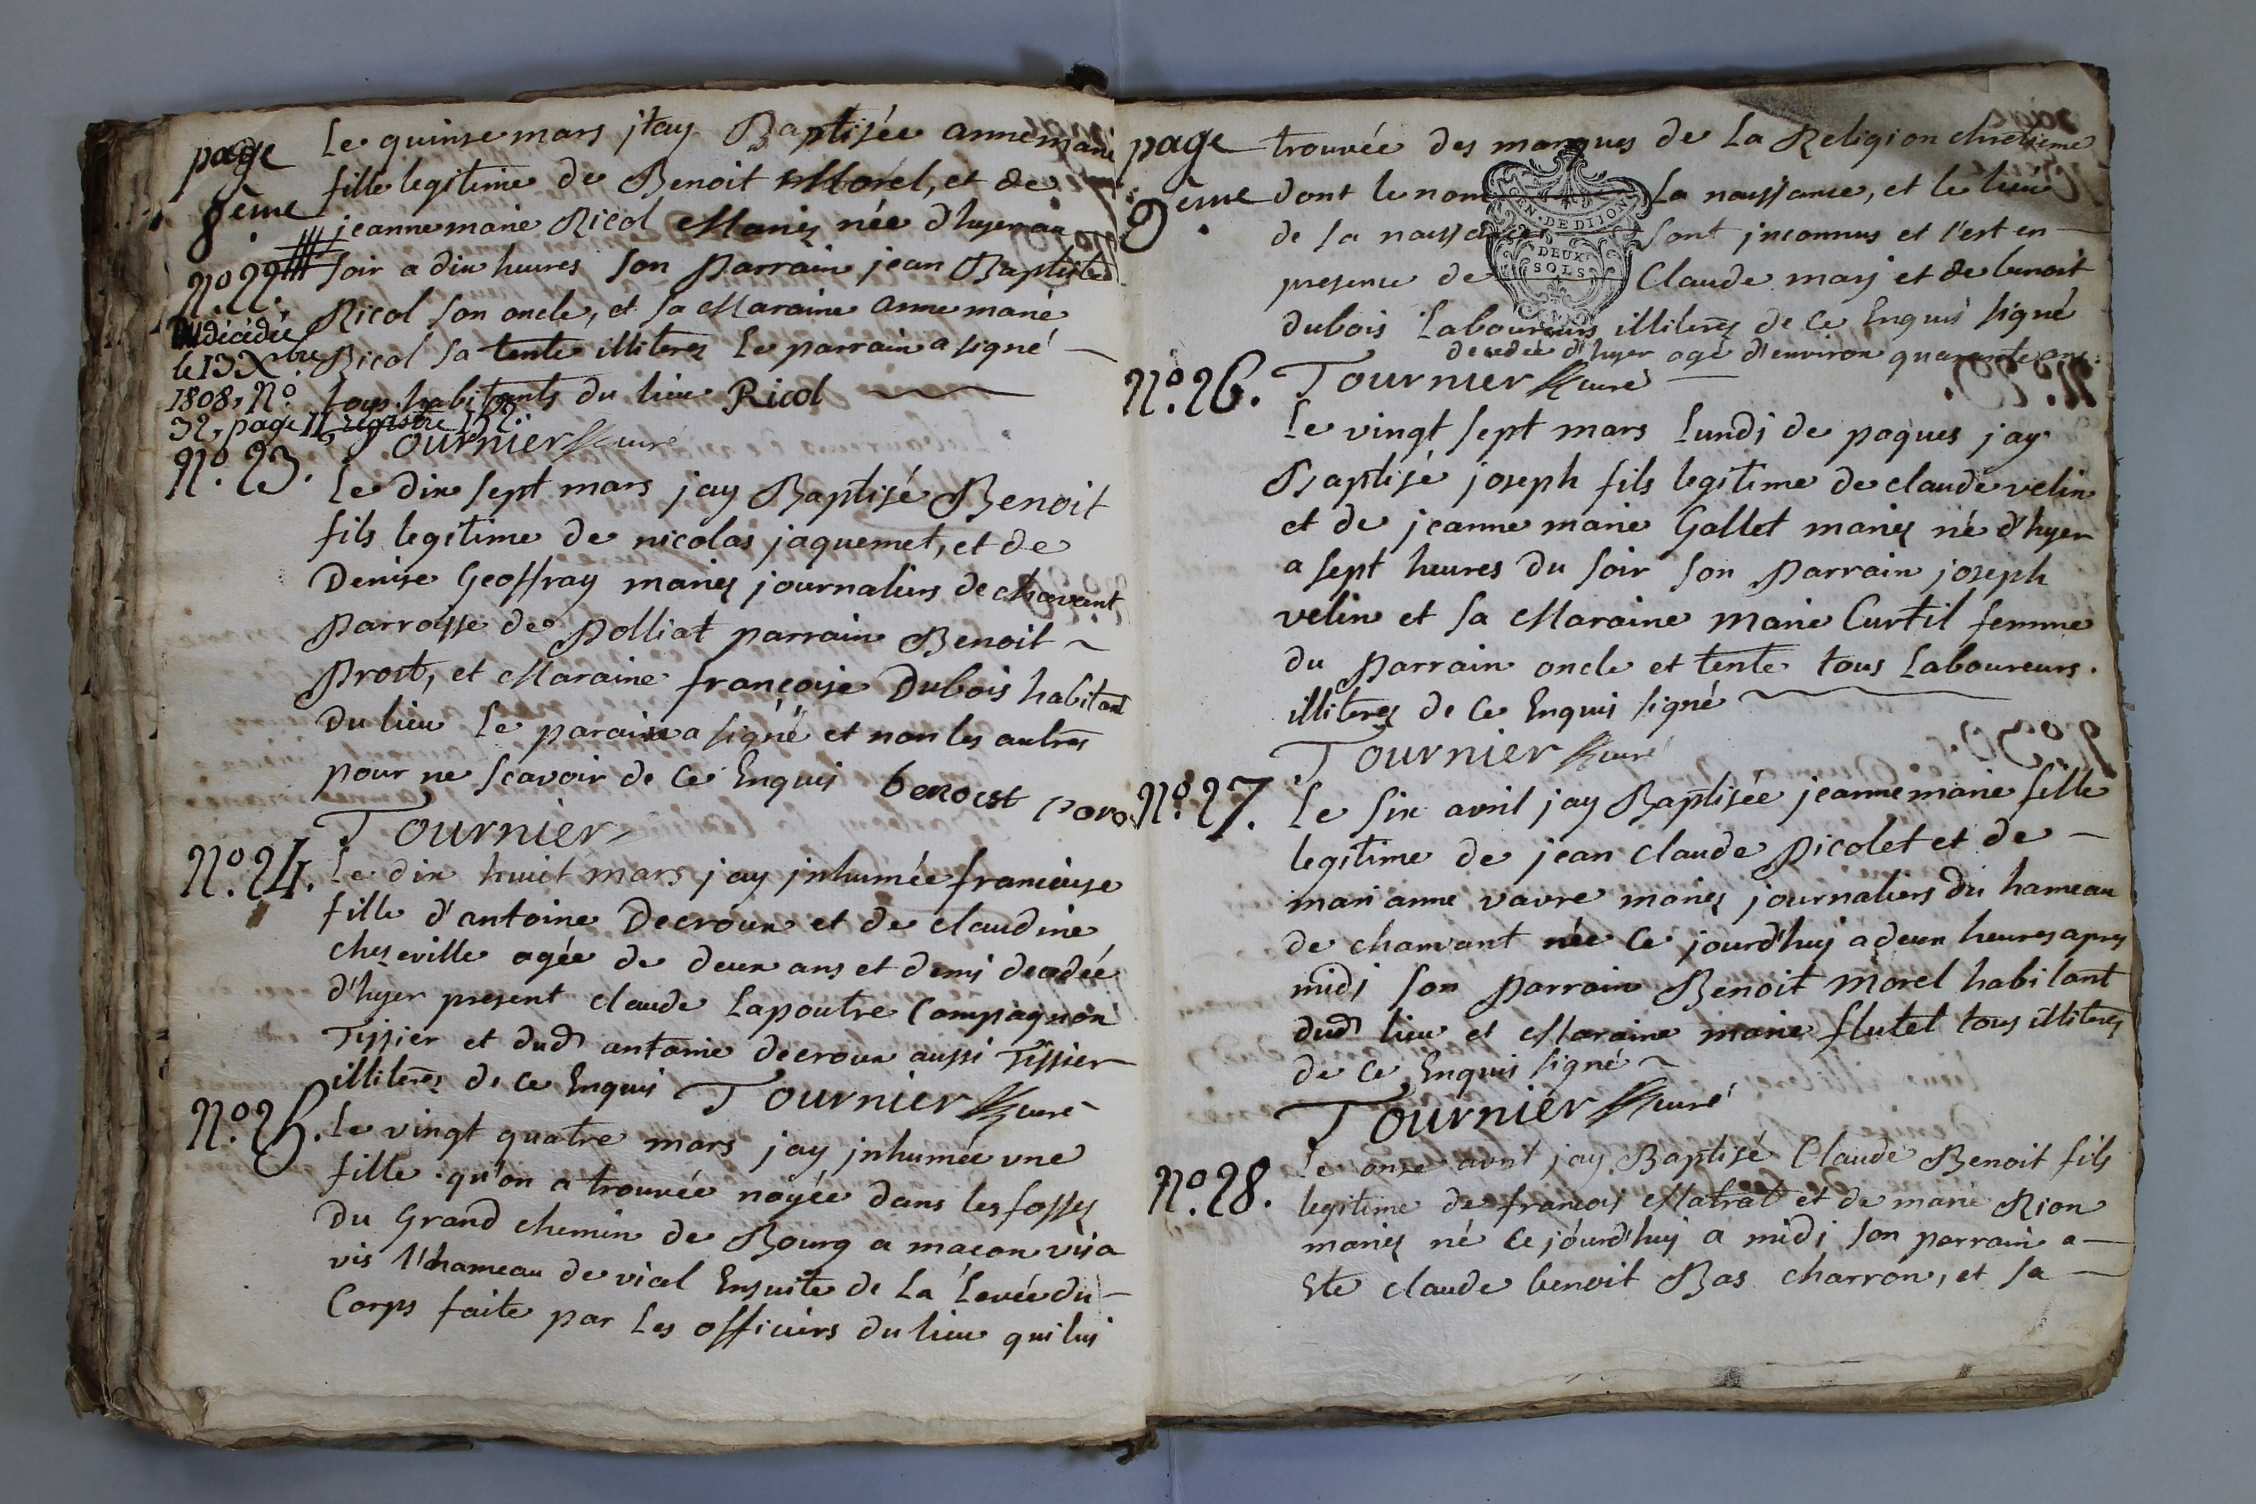 page
8ème
Le quinse mars jay Baptisée anne marie
fille legitime de Benoit Morel, et de
jeanne marie Ricol Mariez née d'hyer au
No. 22.
soir a dix heures son Parrain jean Baptiste
Ricol son oncle, et sa Maraine anne marie
décédée
le 13 Xbre
1808, No.
32, page 11, registre 1er.
Ricol sa tente illiterez Le parrain a signé
tous habitants du lieu Ricol
Tournier curé
No. 23.
Le dix sept mars jay Baptisé Benoit
fils legitime de nicolas jaquemet, et de
Denise Geoffray mariez journaliers de
Parroisse de Polliat parrain Benoit
Prost, et Maraine françoise Dubois habitant
du lieu Le parain a signé et non les autres
pour ne scavoir de ce Enquis benoist
Tournier
No. 24.
Le dix huit mars jay jnhumée francoise
fille d'antoine Decroux et de claudine
chezeville agée de deux ans et demj decedée
d'hyer present claude Lapoutre Compagnon
Tissier et dud antoine decroux aussi Tissier
illiterez de ce Enquis Tournier curé
No. 25.
Le vingt quatre mars jay jnhumée une
fille qu'on a trouvée noyée dans les fossez
du Grand chemin de Bourg a macon vis a
vis l'hameau de vial Ensuite de La Levée du
Corps faite par Les officiers du lieu qui lui
page
9ème
trouvée des marques de La Religion chretienne
dont le nom La naissance, et le lieu
de sa naissance sont jnconnus et s'est en
presence de Claude marj et de benoit
dubois Laboureurs illiterez de ce Enquis signé
decedée d'hyer agé d'environ quarante ans
EN. DE DIJON
DEUX
SOLS
No. 26.
Tournier curé
Le vingt sept mars Lundj de paques jay
Baptisé joseph fils legitime de claude velin
et de jeanne marie Gallet mariez né d'hyer
a sept heures du soir son Parrain joseph
velin et sa Maraine marie Curtil femme
du Parrain oncle et tente tous Laboureurs.
illiterez de ce Enquis signé
Tournier curé
No. 27.
Le six avril jay Baptisée jeanne marie fille
legitime de jean claude Picolet et de
mari anne vavre mariez journaliers du hameau
de chanvant née ce jourd'huy a deux heures apres
midj son Parrain Benoit Morel habitant
dud lieu et Maraine marie flutet tous illiterez
de ce Enquis signé
Tournier curé
No. 28.
Le onze avril jay Baptisé Claude Benoit fils
legitime de francois Matrat et de marie Rion
mariez né ce jourd'huy a midj son parrain a
Ete claude benoit Bas charron, et sa